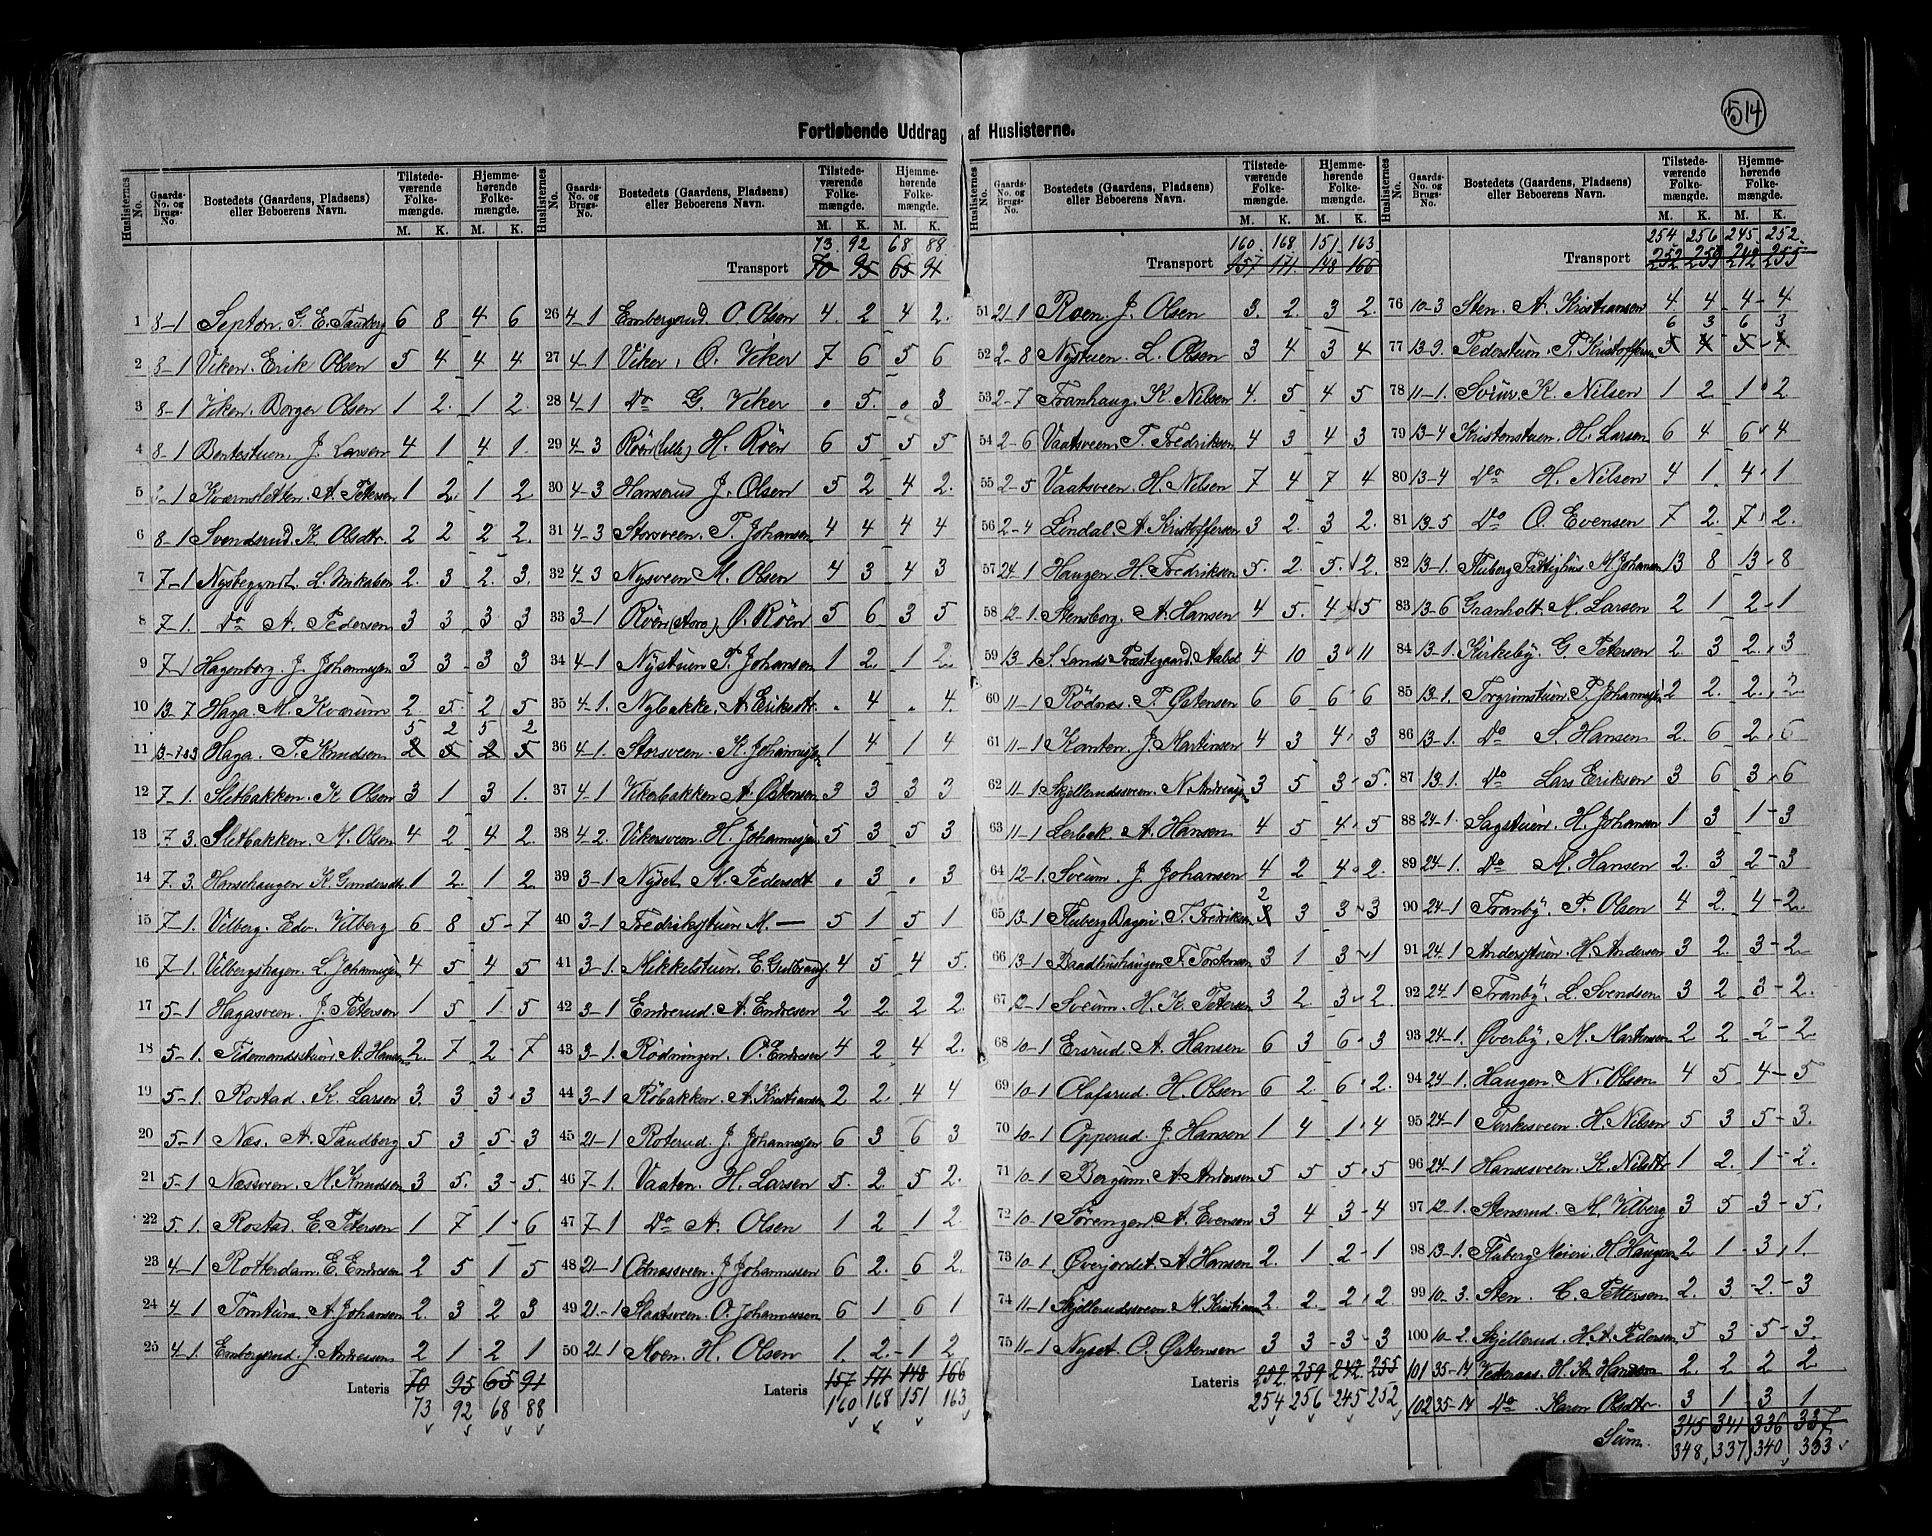 514
Fortløbende Uddrag af Huslisterne.
Huslisternes No. Gaards-No. og Brugs-No. Bostedets (Gaardens, Pladsens) eller Beboerens Navn. Tilstedeværende Folkemængde. M. K. Hjemmehørende Folkemængde. M. K.
1 8-1 Septon. G. E. Tandberg 6 8 4 6
2 8-1 Viken. Erik Olsen 5 4 4 4
3 8-1 Viken. Borger Olsen 1 2 1 2
4 8-1 Bentestuen. J. Larsen 4 1 4 1
5 8-1 Kværnsletten. A. Petersen 1 2 1 2
6 8-1 Svendsrud. K. Olsdtr. 2 2 2 2
7 7-1 L. Mikalsen 2 3 2 3
8 7-1. Do A. Pedersen 3 3 3 3
9 7-1 Hagenborg. J. Johannesen 3 3 3 3
10 13-7 Haga. M. Kværum 2 5 2 5
5 2 5 2
11 Haga. P. Knudsen 2 5 2 5
12 7-1. Sletbakken. K. Olsen 3 1 3 1.
13 7-3. Sletbakken. M. Olsen 4 2 4 2.
14 7-3. Hansehaugen K. Gundersdt. 1 2 1 2
15 7-1. Vilberg. Edv. Vilberg 6 8 5 7
16 7-1. Vilbergshagen. L. Johannesen 4 5 4 5
17 5-1 Hagasveen. J. Petersen 1 5 1 5
18 5-1. Tidemandsstuen. A. Hansen 2. 7 2 7
19 5-1. Rostad. K. Larsen 3 3 3 3
20 5-1 Næs. A. Tandberg 5 3 5 3
21 5-1 Næssveen. N. Knudsen 3 5. 3 5.
22 5-1. Rostad. E. Petersen 1 7 1 6
23 4-1 Rotterdam. E. Endresen 2 5 1 5
24 4-1 A. Johansen 2. 3 2 3
25 4-1. Embergsrud. J. Andresen 2 1 2 1
Lateris 70 95 65 91
73 92 68 88
Huslisternes No. Gaards-No. og Brugs-No. Bostedets (Gaardens, Pladsens) eller Beboerens Navn. Tilstedeværende Folkemængde. M. K. Hjemmehørende Folkemængde. M. K.
73 92 68 88
Transport 70 95 65 91
26 4-1 Embergsrud. O. Olsen 4 2 4 2
27 4-1 Viker. O. Viker 7 6 5 6
28 4-1 Do G. Viker " 5 " 3
29 4-3 Röen (lille) H. Röen 6 5 5 5
30 4-3 Hanserud J. Olsen 5 2 4 2.
31 4-3 Storsveen. P. Johansen 4 4 4 4
32 4-3 Nysveen M. Olsen 4 3 4 3
33 3-1 Röen (store) O. Röen 5 6 3 5
34 4-1 Nystuen P. Johansen 1 2 1 2
35 4-1. Nybakke. A. Eriksdtr. " 4 " 4.
36 4-1. Storsveen. K. Johannesen 1 4 1 4
37 4-1 Vikerbakken A. Østensen 3 3 3 3
38 4-2. Vikersveen. H. Johannesen 5 3 5 3
39 3-1 Nyset. M. Pedersdt. " 3 " 3
40 3-1 Fredrikstuen M. — 5 1 5 1
41 3-1. Mikkelstuen. E. Gulbrands. 4 5 4 5.
42 3-1 Enderud. A. Endresen 2 2 2 2
43 3-1. Rødningen. O. Endresen 4 2 4 2.
44 3-1 Röbakken. A. Kristiansen 2 2 4 4
45 21-1 Roterud. J. Johannesen 6 3 6 3
46 7-1. Vaaten. H. Larsen 5. 2 5 2.
47 7-1 Do A. Olsen 1 2 1 2.
48 21-1 J. Johannessen 6 2. 6 2.
49 21-1 Slaatsveen. O. Johannessen 6 1 6 1
50 21-1 Moen. H. Olsen 1. 2. 1 2
Lateris 157 171 148 166
160 168 151 163
Huslisternes No. Gaards-No. og Brugs-No. Bostedets (Gaardens, Pladsens) eller Beboerens Navn. Tilstedeværende Folkemængde. M. K. Hjemmehørende Folkemængde. M. K.
160 168 151 163
Transport 157 171 148 166
51 21-1 Roen. J. Olsen 3. 2. 3 2.
52 2-8 Nystuen. L. Olsen 3 4 3 4
53 2-7 Tranhaug. K. Nilsen 4. 5 4 5
54 2-6 Vaatsveen. P. Fredriksen 4 3 4 3
55 2-5 Vaatsveen. H. Nilsen 7 4 7 4
56 2-4 Løndal. A. Kristoffersen 3 2. 3 2.
57 24-1 Haugen. H. Fredriksen 5. 2 5. 2.
58 12-1. Stensborg. A. Hansen 4 5. 4 5
59 13-1 S. Lands Præstegaard. Aabel 4 10 3 11
60 11-1 Rödnæs. P. Østensen 6 6 6 6
61 11-1 Kanten. J. Martinsen 4 3 4 3
62 11-1 Skjellerudsveen. N. Andreasen 3 5 3 5.
63 11-1 Lerbak. A. Hansen 4 5 4 5
64 12-1. Sveum. J. Johansen 4 2 4 2.
2
65 13-1 Fluberg Bageri. T. Fredriksen 3 3 3 3
66 13-1 Baadhushaugen F. Torstensen 3 1 3 1
67 12-1 Sveum. H. K. Petersen 3 2 3 2.
68 10-1 Ersrud. A. Hansen 6 3 6 3
69 10-1 Olafsrud. H. Olsen 6 2. 6 2.
70 10-1 Opperud. J. Hansen 1 4 1 4
71 10-1 Bergum. A. Andersen 5 5 5 5
72 10-1 Sörengen. A. Evensen 3 4 3 4
73 10-1. Øverjordet. A. Hansen 2. 1 2 1
74 11-1 Skjellerudsveen M. Kristians. 2. 2. 2 2
75 11-1 Nyset. O. Østensen 3 3 3 3
Lateris 252. 259 242. 255
254 256 245 252
Huslisternes No. Gaards-No. og Brugs-No. Bostedets (Gaardens, Pladsens) eller Beboerens Navn. Tilstedeværende Folkemængde. M. K. Hjemmehørende Folkemængde. M. K.
254 256 245 252.
Transport 252 259 242 255
76 10-3 Sten. A. Kristiansen 4 4 4 4
6 3 6 3
77 13-9. Pederstuen. P. Kristoffersen 5 4 5 4
78 11-1. K. Nilsen 1 2 1 2
79 13-4 Kristenstuen. H. Larsen 6 4 6 4
80 13-4 Do H. Nilsen 4 1. 4 1
81 13-5 Do O. Evensen 7 2. 7 2.
82 13-1. Fluberg Fattighus M. Johansen 13 8 13 8
83 13-6 Granholt. M. Larsen 2 1 2 1
84 13-1. Kirkeby. G. Petersen 2 3 2 3
85 13-1. Torgrimstuen. P. Johannesen 2 2. 2. 2
86 13-1. Do S. Hansen 2. 6 2 6
87 13-1. Do Lars Eriksen 3 6 3 6
88 24-1. Sagstuen. H. Johansen 1 3 1 3
89 24-1. Do M. Hansen 2. 3 2 3
90 24-1 Tranby. P. Olsen 4 2. 4 2.
91 24-1 Anderstuen. H. Andersen 3 2. 3 2
92 24-1 Tranby. L. Svendsen 3 2 3 2.
93 24-1. Øverby. M. Martinsen 2 2 2 2
94 24-1. Haugen. N. Olsen 4 5 4 5
95 24-1 H. Nilsen 5 3 5 3.
96 24-1 Hansesveen. K. Nilsdtr 1 2. 1 2.
97 12-1. Stensrud. M. Vilberg 3 5 3 5.
98 13-1. Fluberg Meieri. H. Haugen 2 1 3 1.
99 10-3. Sten. C. Pettersen 2. 3 2 3
100 10-2. Skjellerud. H. A. Pedersen 5 3 5 3.
101 35-14 Vederaas. H. K. Hansen 2. 2 2 2
102 35-14 Do Karen Olsdtr. 3 1 3 1
345 341 336 337
Sum. 348 337 340 333